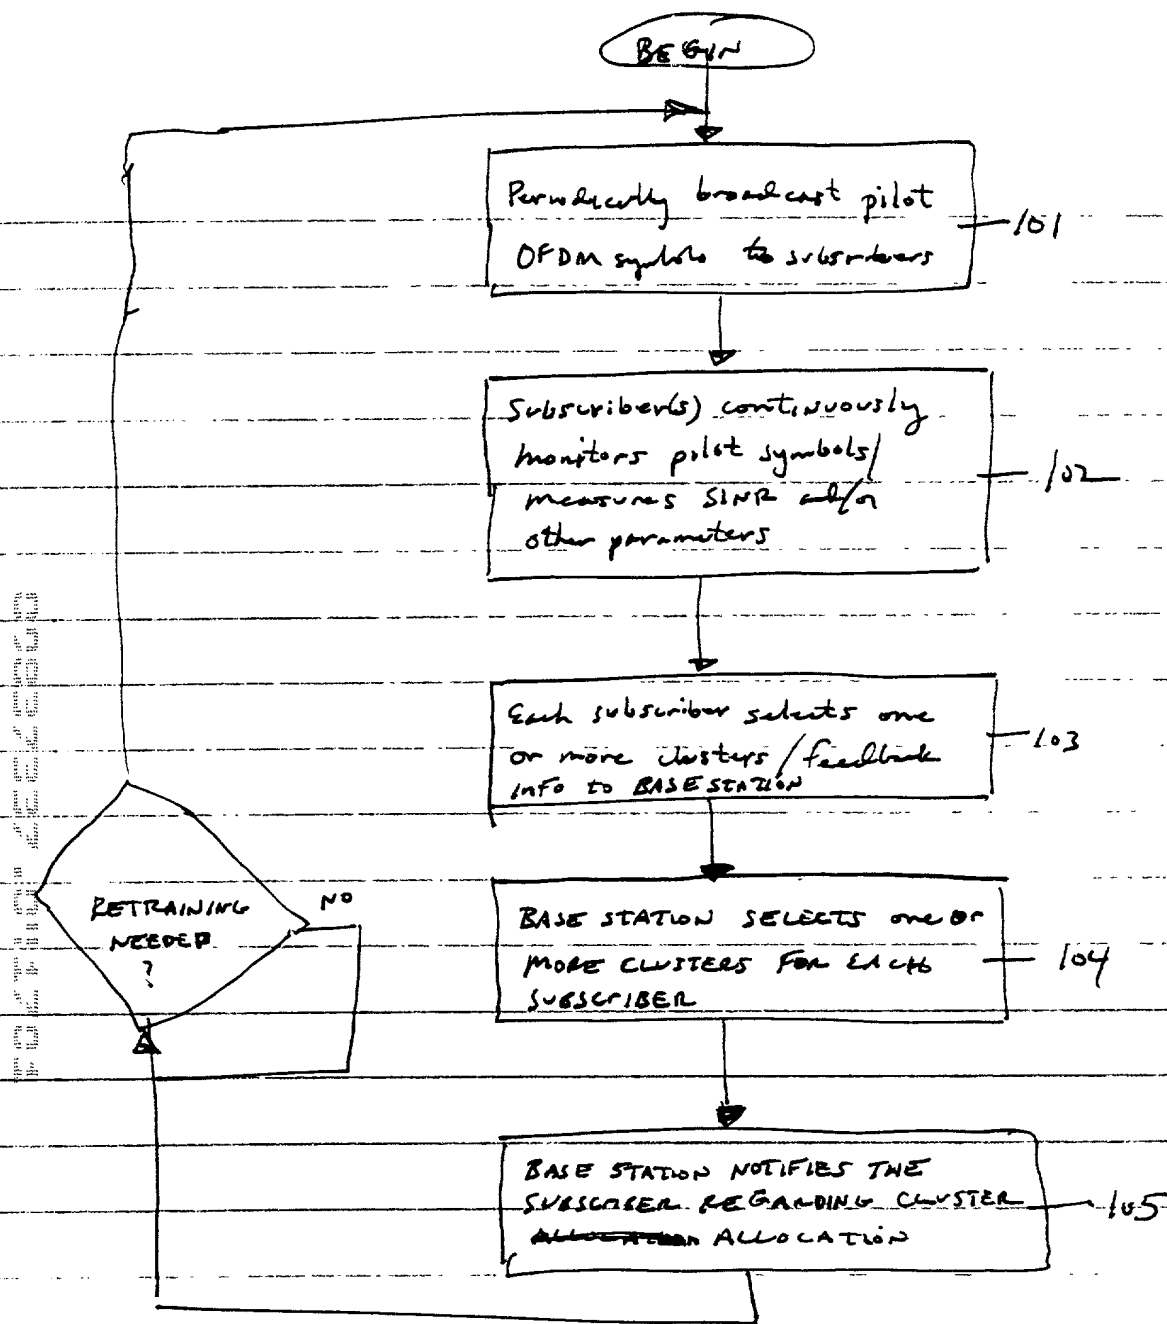 BEGIN
Periodically broadcast pilot
OFDM symbols to subscribers
101
Subscriber(s) continuously
monitors pilot symbols/
measures SINR and/or
other parameters
102
Each subscriber selects one
or more clusters/feedback
info to BASE STATION
103
RETRAINING
NEEDED
?
NO
BASE STATION SELECTS one OR
MORE CLUSTERS FOR EACH
SUBSCRIBER
104
BASE STATION NOTIFIES THE
SUBSCRIBER REGARDING CLUSTER
ALLOCATION
105